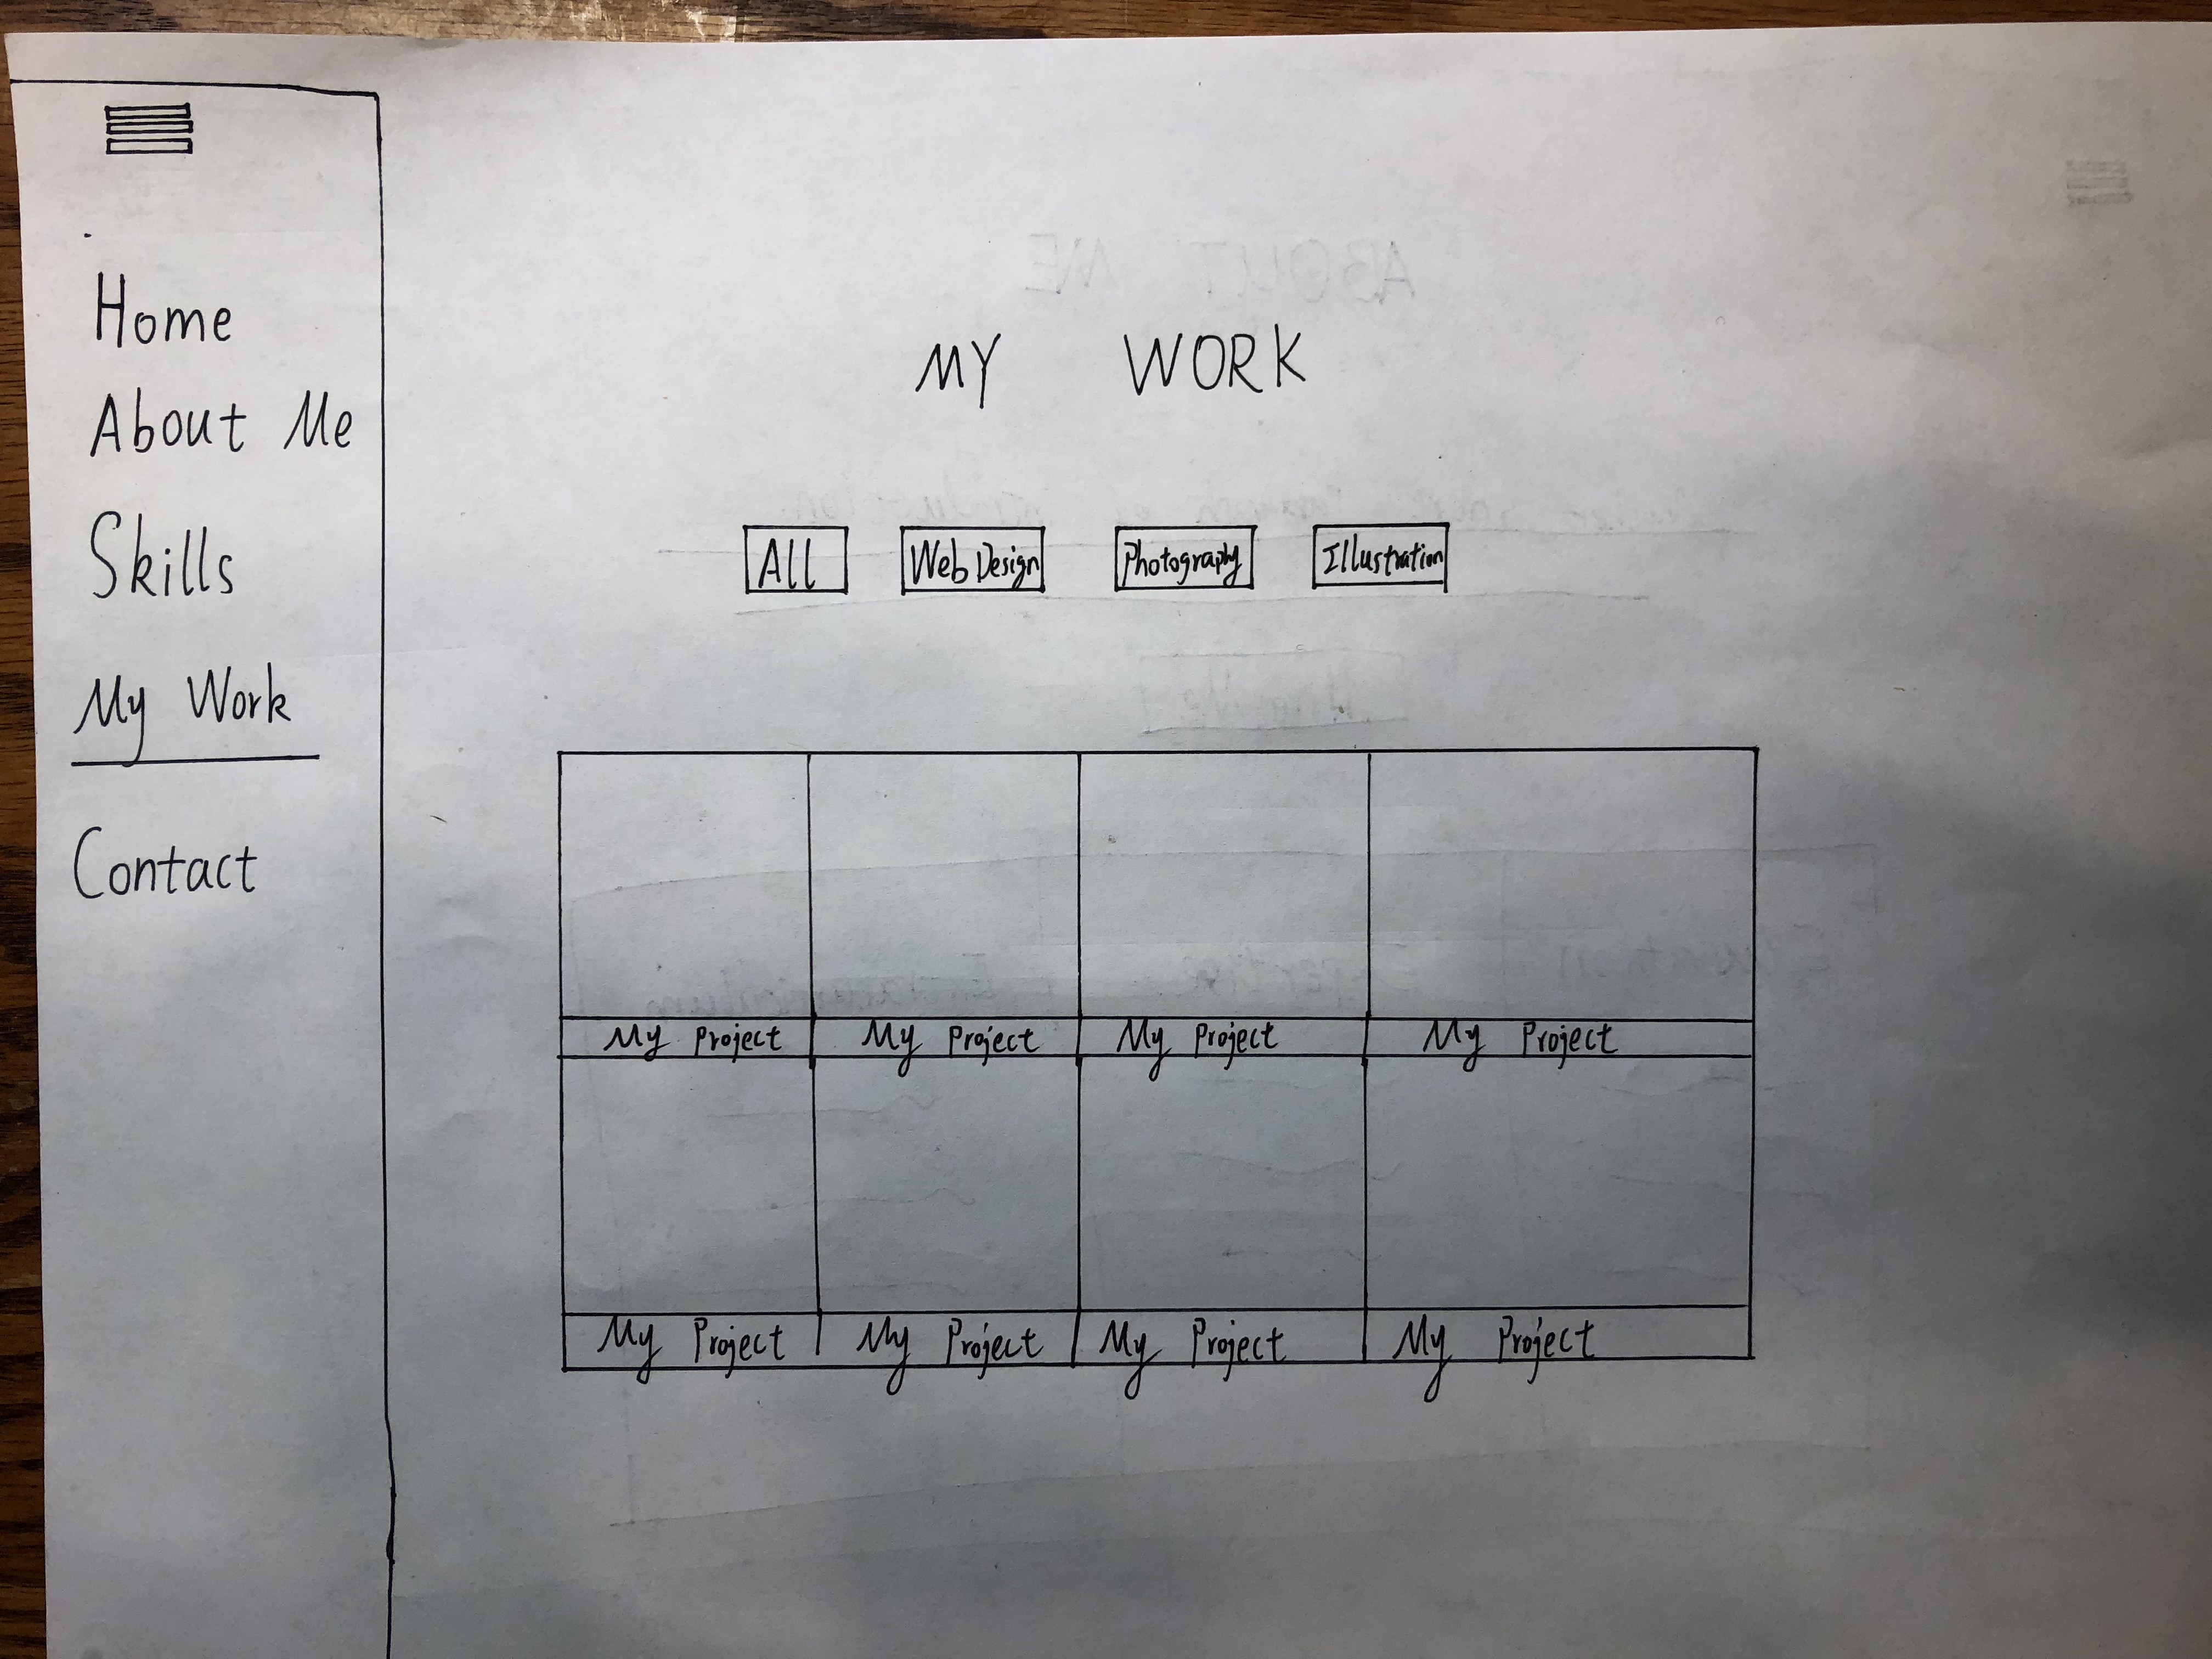 Home
About Me
Skills
My Work
Contact
MY WORK
All Web Design Photography Illustration
My Project My Project My Project My Project
My Project My Project My Project My Project